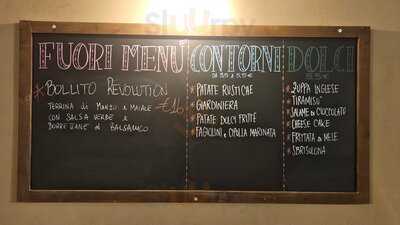 Sluurpy
FUORI MENÙ
BOLLITO REVOLUTION
TERRINA di MANZO E MAIALE €16
CON SALSA VERDE E
BORRETANE al BALSAMICO
CONTORNI
PATATE RUSTICHE
GIARDINIERA
PATATE DOLCI FRITTE
FAGIOLINI E CIPOLLA MARINATA
DOLCI
ZUPPA INGLESE
TIRAMISU'
SALAME DI CIOCCOLATO
CHEESE CAKE
DI MELE
SBRISOLONA